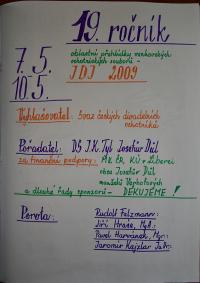 19. ročník
7. 5.
10. 5.
oblastní přehlídky venkovských
ochotnických souborů -
JDJ 2009
Vyhlašovatel: Svaz českých divadelních
ochotníků
Pořadatel: DS J.K. Tyl Josefův Důl
za finanční podpory: MK ČR, KÚ v Liberci
obce Josefův Důl
manželů Vrphotových
a dlouhé řady sponzorů - DĚKUJEME!
Porota:
Rudolf Felzmann
Jiří Hraše,
Pavel Harvánek, Mgr.
Jaromír Kejzlar